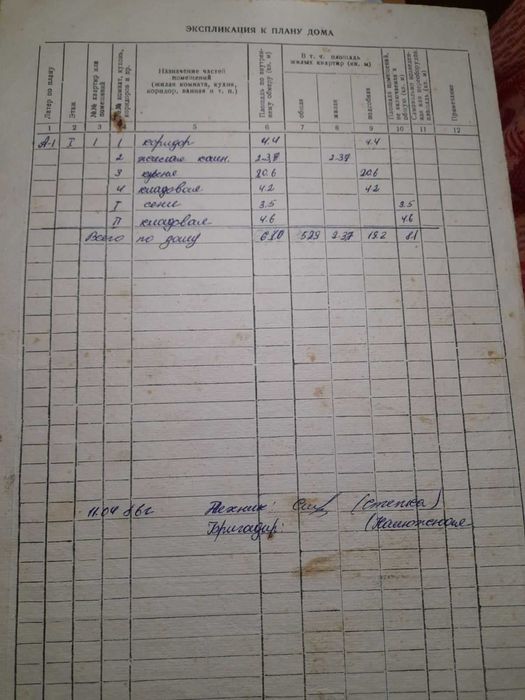 ЭКСПЛИКАЦИЯ К ПЛАНУ ДОМА
Литер по плану
Этаж
№№ квартир или помещений
№№ комнат, кухонь, коридоров и пр.
Назначение частей помещений (жилая комната, кухня, коридор, ванная и т. п.)
Площадь по внутреннему обмеру (кв. м)
В т. ч. площадь жилых квартир (кв. м)
общая
жилая
подсобная
Площадь помещений, не включенных в общую (кв. м)
площадь (кв. м)
Примечание
1 2 3 4 5 6 7 8 9 10 11 12
А-1 I 1 1 коридор 4.4 4.4
2 жилая комн. 23.7 23.7
3 кухня 20.6 20.6
4 кладовая 4.2 4.2
I сени 3.5 3.5
II кладовая 4.6 4.6
Всего по дому
11.04 86г Техник: (Степка)
Бригадир: